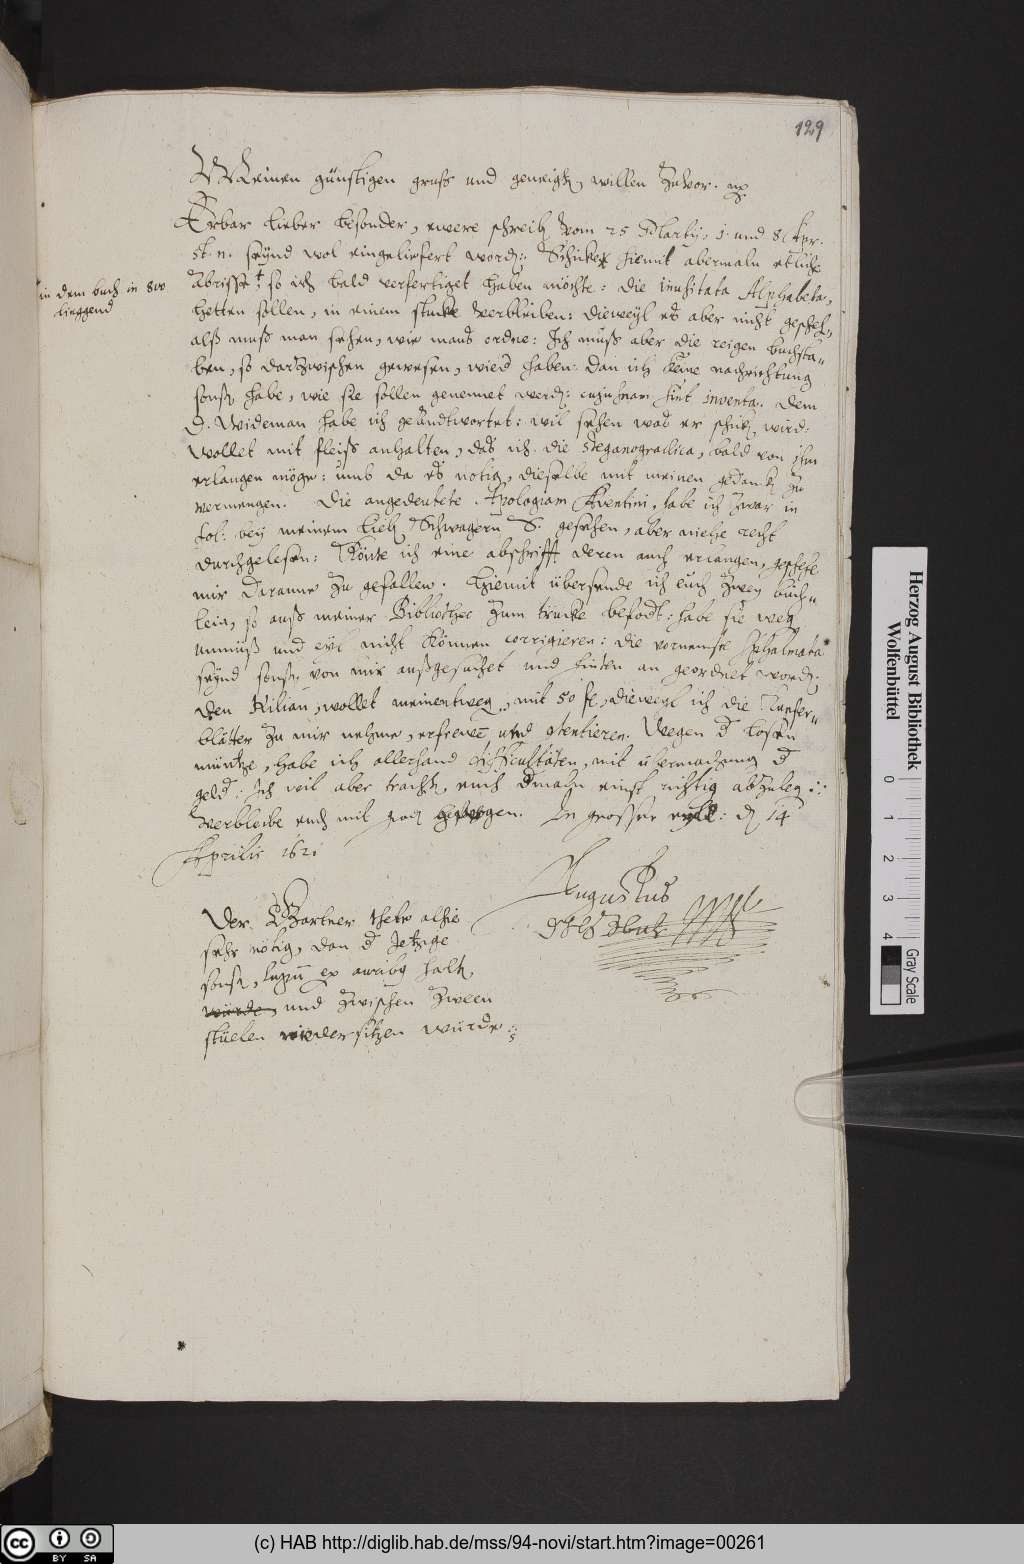 129
Meinen günstigen gruß und geneigt willen zuvor.
Erbar lieber besonder, ewere schreib vom 25 Martij, 1. und 8 Apr.
st. n. seynd wol eingeliefert word: Schicke hiemit abermaln etliche
in dem buch in 8vo
lieggend
Abrisse † so ich bald verfertiget haben möchte: die inusitata Alphabeta,
hetten sollen, in einem stucke verbleiben: dieweyl es aber nicht gescheh,
alß muß man sehen, wie mans ordne: Ich muß aber die eigen buchsta-
ben, so darzwischen gewesen, wied haben: dan ich keine nachrichtung
sonst habe, wie sie sollen genennet werd: cuius nam sint inventa. Dem
D. Wideman habe ich geandtwortet: wil sehen was er schick wird:
Wollet mit fleiß anhalten, das ich die Steganografica, bald von ihm
erlangen möge: umb da es nötig, dieselbe mit meinen gedank zu
vermengen. Die angedeutete Apologiam Aventini, habe ich zwar in
fol: bey meinem lieb Schwagern S. gesehen, aber niehe recht
durchgelesen: Könte ich eine abschrifft deren auch erlangen, geschehe
mir daranne zu gefallen. Hiemit übersende ich euch zwey büch-
lein, so auß meiner Bibliothec zum trucke befodt: habe sie weg
unmuß und eyl nicht können corrigieren: die vornemste Sphalmata
seynd sonst von mir außgesuchet und hinden an geordnet word:
Den Kilian, wollet meinentweg, mit 50 fl, dieweyl ich die Kupfer-
blätter zu mir nehme, erfrewen und contentieren. Wegen d bosen
müntze, habe ich allerhand difficulteten, mit ubermachung d
geld: Ich wil aber tracht, euch dmaln einst richtig abzuleg:
Verbleibe euch mit gnad gewogen. In grosser eyle: d 14
Aprilis 1621
Augustus
HZBuL
Der Gartner thete alhie
sehr nötig, dan d jetzige
sonst, halt
würde, und zwischen zween
stüelen niedersitzen würde:
Herzog August Bibliothek
Wolfenbüttel
0 1 2 3 4
Gray Scale
cc BY SA
(c) HAB http://diglib.hab.de/mss/94-novi/start.htm?image=00261